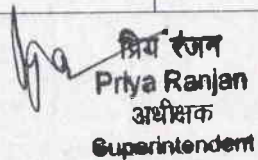 प्रिय रंजन
Priya Ranjan
अधीक्षक
Superintendent